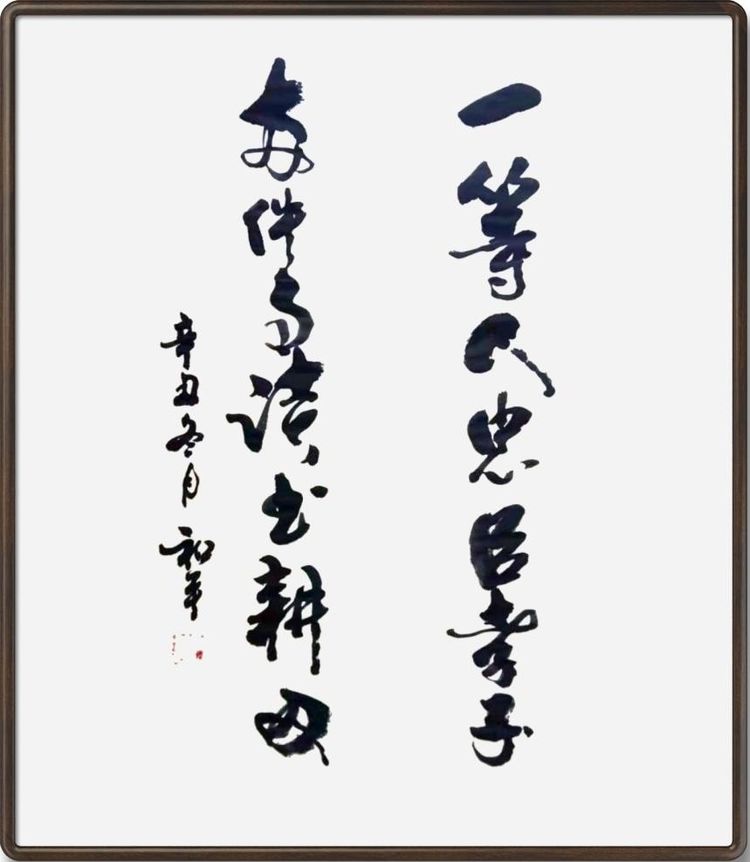 一等人忠臣孝子
两件事读书耕田
辛丑冬月 和平